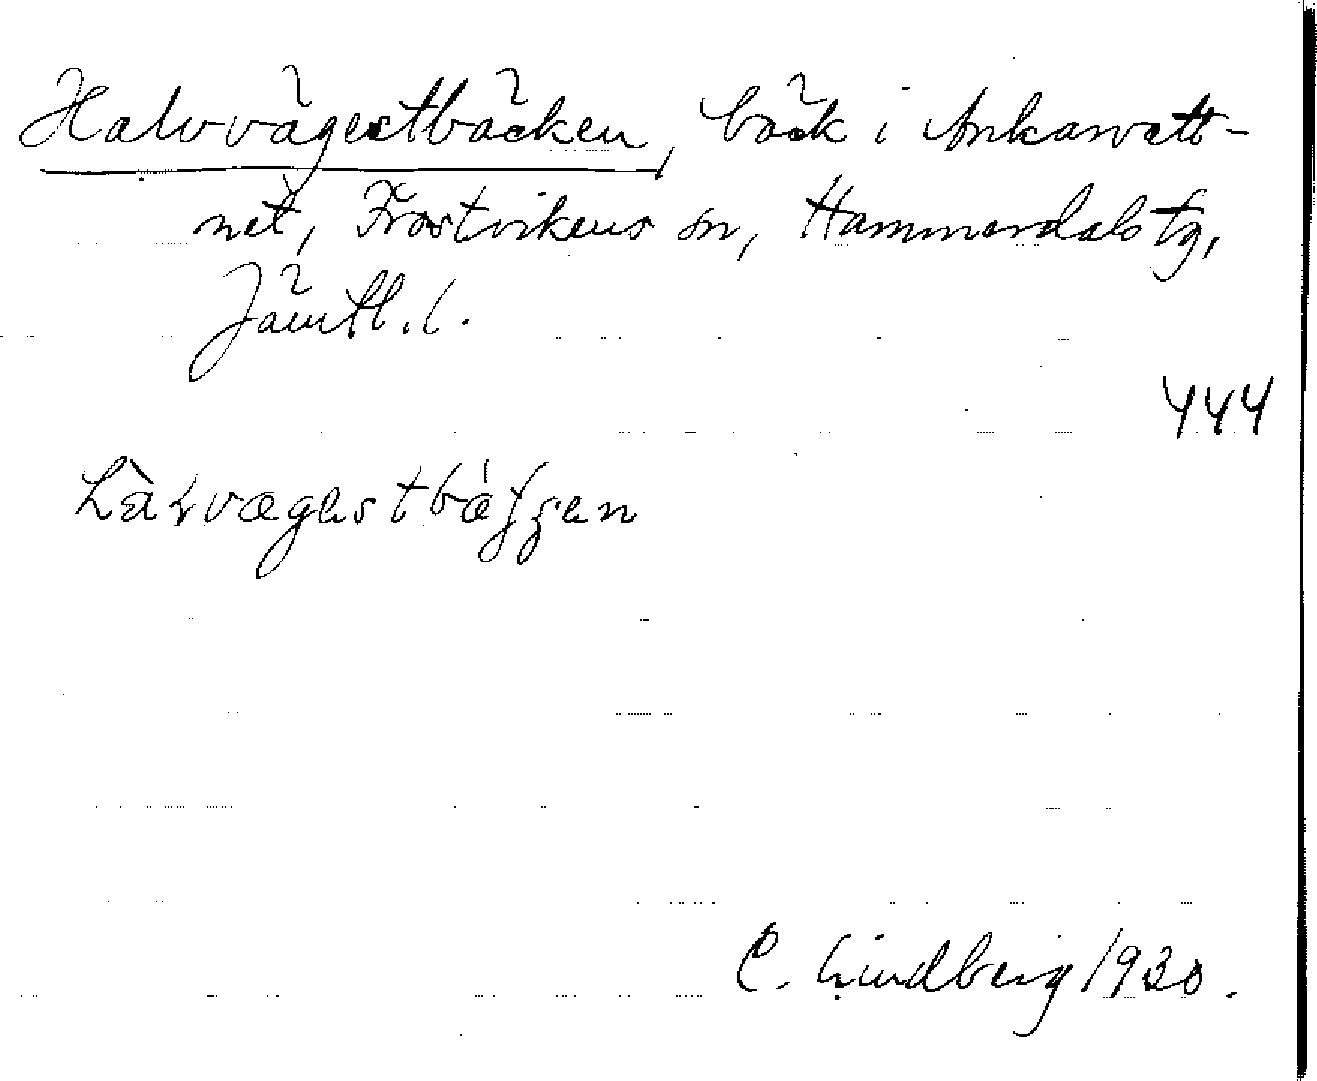 Halvvägestbäcken, bäck i Ankarvatt-
net, Frostvikens sn, Hammerdals tg,
Jämtl. l.
444
C. Lindberg 1930.